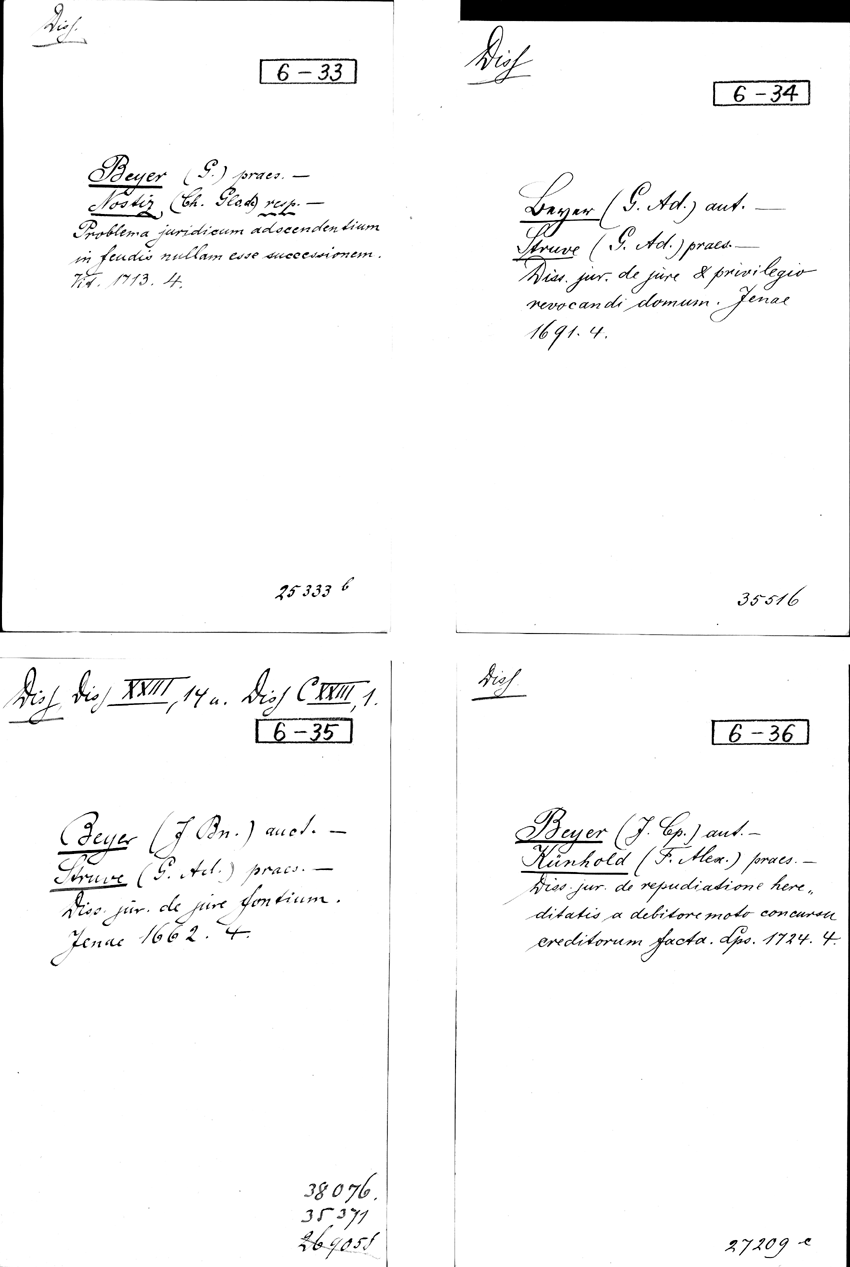 Diss.
6-33
Beyer (G.) praes. —
Nostiz (Ch. Glad) resp. —
Problema juridicum adscendentium
in feudis nullam esse successionem.
Vit. 1713. 4.
25333 b
Diss
6-34
Beyer (G. Ad.) aut. —
Struve (G. Ad.) praes. —
Diss. jur. de jure & privilegio
revocandi domum. Jenae
1691. 4.
35516
Diss Diss XXIII, 14 u. Diss CXXIII, 1.
6-35
Beyer (J Bn.) auct. —
Struve (G. Ad.) praes. —
Diss. jur. de jure fontium.
Jenae 1662. 4.
38076.
35371
Diss
6-36
Beyer (J. Cp.) aut. —
Künhold (F. Alex.) praes. —
Diss. jur. de repudiatione here„
ditatis a debitore moto concursu
creditorum facta. Lps. 1724. 4.
27209 c